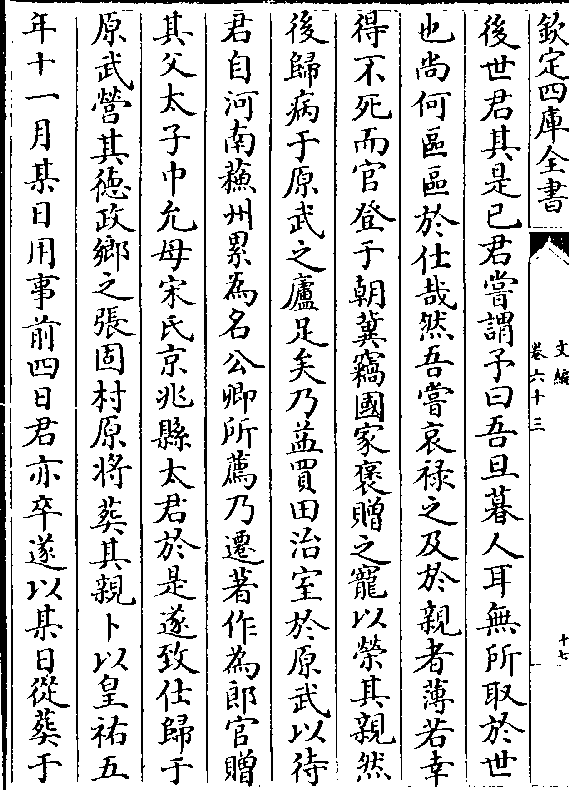 欽定四庫全書
文編
卷六十三
十七
後世君其是已君嘗謂予曰吾旦暮人耳無所取於世
也尚何區區於仕哉然吾嘗哀祿之及於親者薄若幸
得不死而官登于朝冀竊國家褒贈之寵以榮其親然
後歸病于原武之廬足矣乃益買田治室於原武以待
君自河南蘓州累為名公卿所薦乃遷著作為郎官贈
其父太子中允母宋氏京兆縣太君於是遂致仕歸于
原武營其德政鄉之張固村原將葬其親卜以皇祐五
年十一月某日用事前四日君亦卒遂以某日從葬于